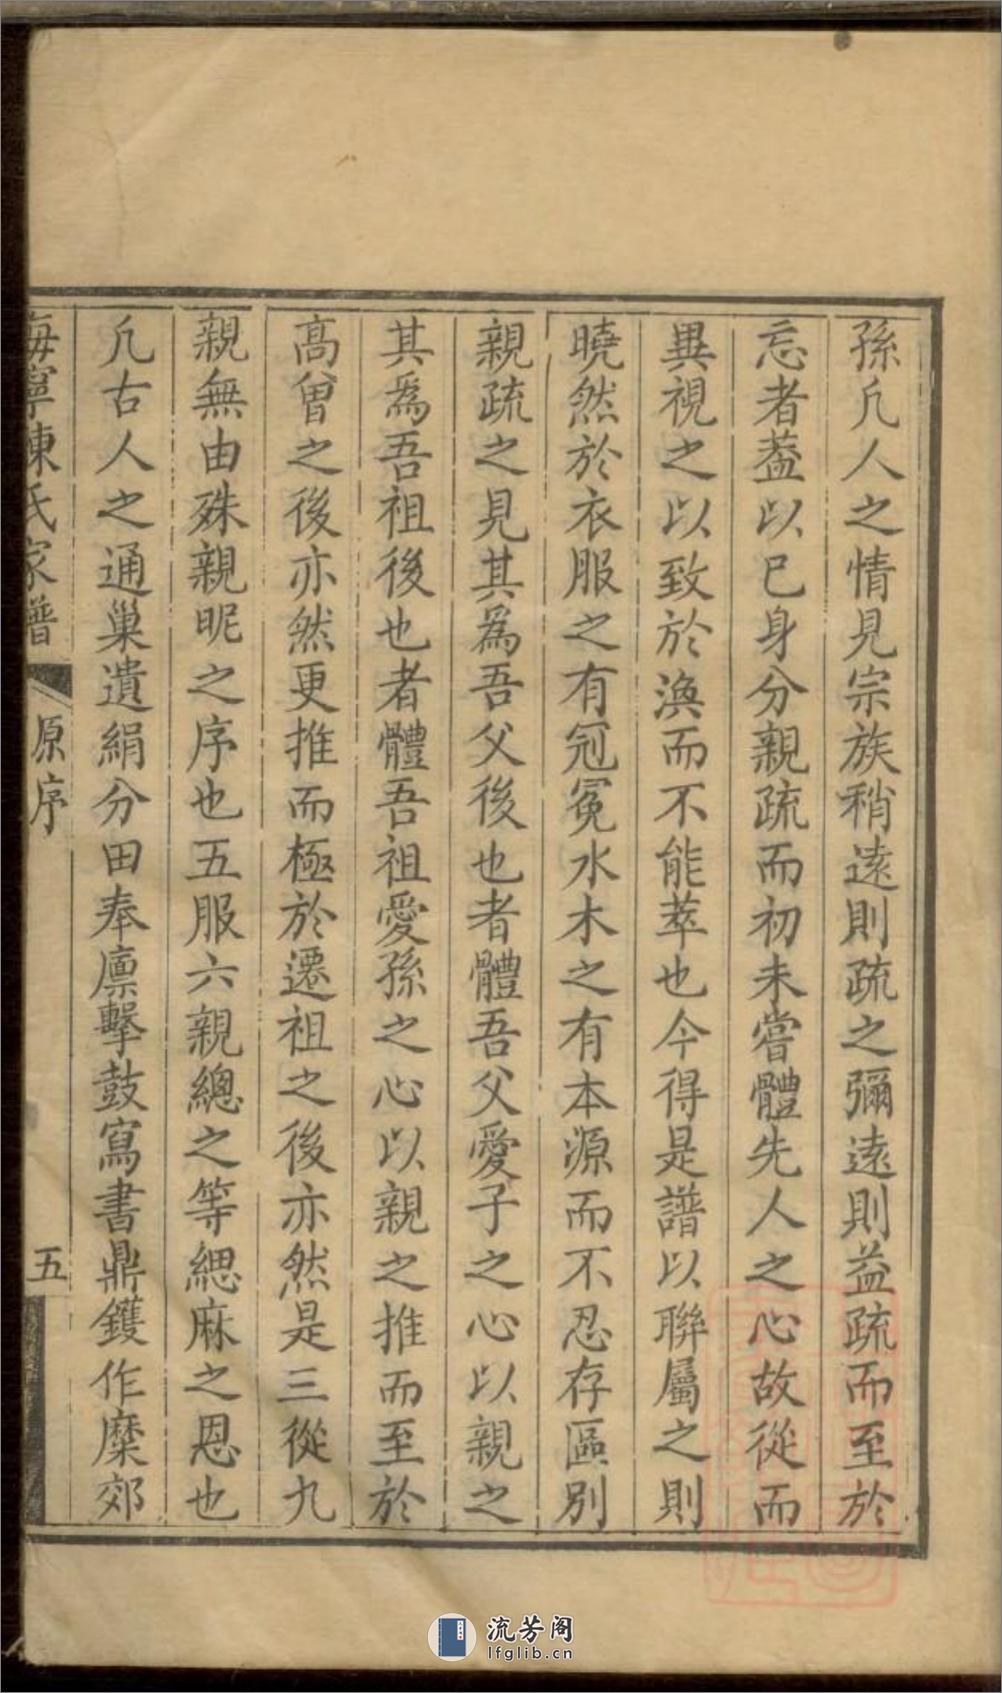 孫凢人之情見宗族稍逺則疏之彌逺則益疏而至於
忘者葢以已身分親疏而初未嘗體先人之心故從而
異視之以致於渙而不能萃也今得是譜以聯屬之則
曉然於衣服之有冠冕水木之有本源而不忍存區別
親疏之見其爲吾父後也者體吾父愛子之心以親之
其爲吾祖後也者體吾祖愛孫之心以親之推而至於
高曾之後亦然更推而極於遷祖之後亦然是三從九
親無由殊親昵之序也五服六親總之等緦麻之恩也
凢古人之通巢遺絹分田奉廪擊鼓寫書鼎鑊作糜郊
海寧陳氏家譜
原序
五
流芳阁
lfglib.cn